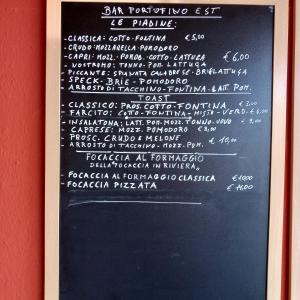 BAR PORTOFINO EST
LE PIADINE:
-CLASSICA: COTTO-FONTINA € 5,00
-CRUDO: MOZZARELLA-POMODORO
-CAPRI: MOZZ. POMOD. COTTO-LATTUGA € 6,00
- NOSTROMO: TONNO-POM. LATTUGA
- PICCANTE: SPIANATA CALABRESE-BRIE-LATTUGA
- SPECK - BRIE - POMODORO
- ARROSTO DI TACCHINO-FONTINA-LATT. POM.
TOAST
- CLASSICO: PROS. COTTO-FONTINA
- FARCITO: COTTO-FONTINA-MISTO-VERD.
- INSALATONA: LATT. POM. MOZZ. TONNO-UOVO
- CAPRESE: MOZZ. POMODORO
- PROSC. CRUDO E MELONE € 10,00
- ARROSTO DI TACCHINO-MOZZ. POM.
FOCACCIA AL FORMAGGIO
DELLA "FOCACCIA IN RIVIERA"
- FOCACCIA AL FORMAGGIO CLASSICA
- FOCACCIA PIZZATA